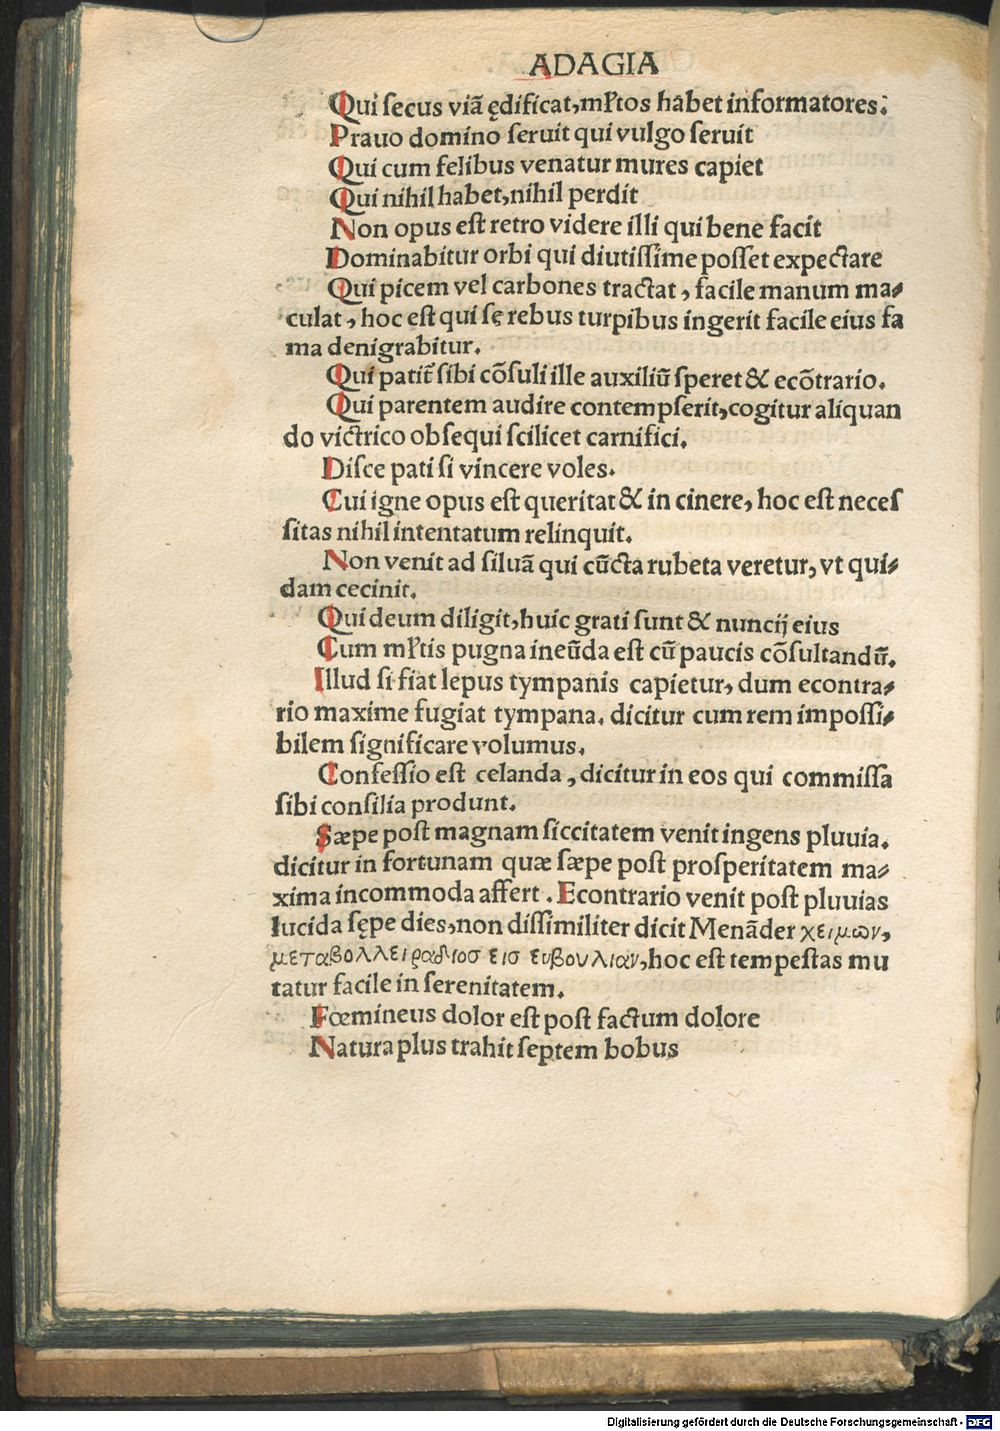 ADAGIA
Qui ſecus viã ędificat,mľtos habet informatores.
Prauo domino ſeruit qui vulgo ſeruit
Qui cum felibus venatur mures capiet
Qui nihil habet,nihil perdit
Non opus eſt retro videre illi qui bene facit
Dominabitur orbi qui diutiſſime poſſet expectare
Qui picem vel carbones tractat, facile manum ma-
culat, hoc eſt qui ſe rebus turpibus ingerit facile eius fa
ma denigrabitur.
Qui patit̃ ſibi cõſuli ille auxiliũ ſperet & ecõtrario.
Qui parentem audire contempſerit,cogitur aliquan
do victrico obſequi ſcilicet carnifici.
Diſce pati ſi vincere voles.
Cui igne opus eſt queritat & in cinere, hoc eſt neceſ
ſitas nihil intentatum relinquit.
Non venit ad ſiluã qui cũcta rubeta veretur, vt qui-
dam cecinit.
Qui deum diligit,huic grati ſunt & nuncij eius
Cum mľtis pugna ineũda eſt cũ paucis cõſultandũ.
Illud ſi fiat lepus tympanis capietur, dum econtra-
rio maxime fugiat tympana. dicitur cum rem impoſſi-
bilem ſignificare volumus.
Confeſſio eſt celanda, dicitur in eos qui commiſſa
ſibi conſilia produnt.
Sæpe poſt magnam ſiccitatem venit ingens pluuia.
dicitur in fortunam quæ ſæpe poſt proſperitatem ma-
xima incommoda affert. Econtrario venit poſt pluuias
lucida ſępe dies,non diſſimiliter dicit Menãder χειμων,
μεταβολλει ραδιοσ εισ ευβουλιαν,hoc eſt tempeſtas mu
tatur facile in ſerenitatem.
Fœmineus dolor eſt poſt factum dolore
Natura plus trahit ſeptem bobus
Digitalisierung gefördert durch die Deutsche Forschungsgemeinschaft - DFG